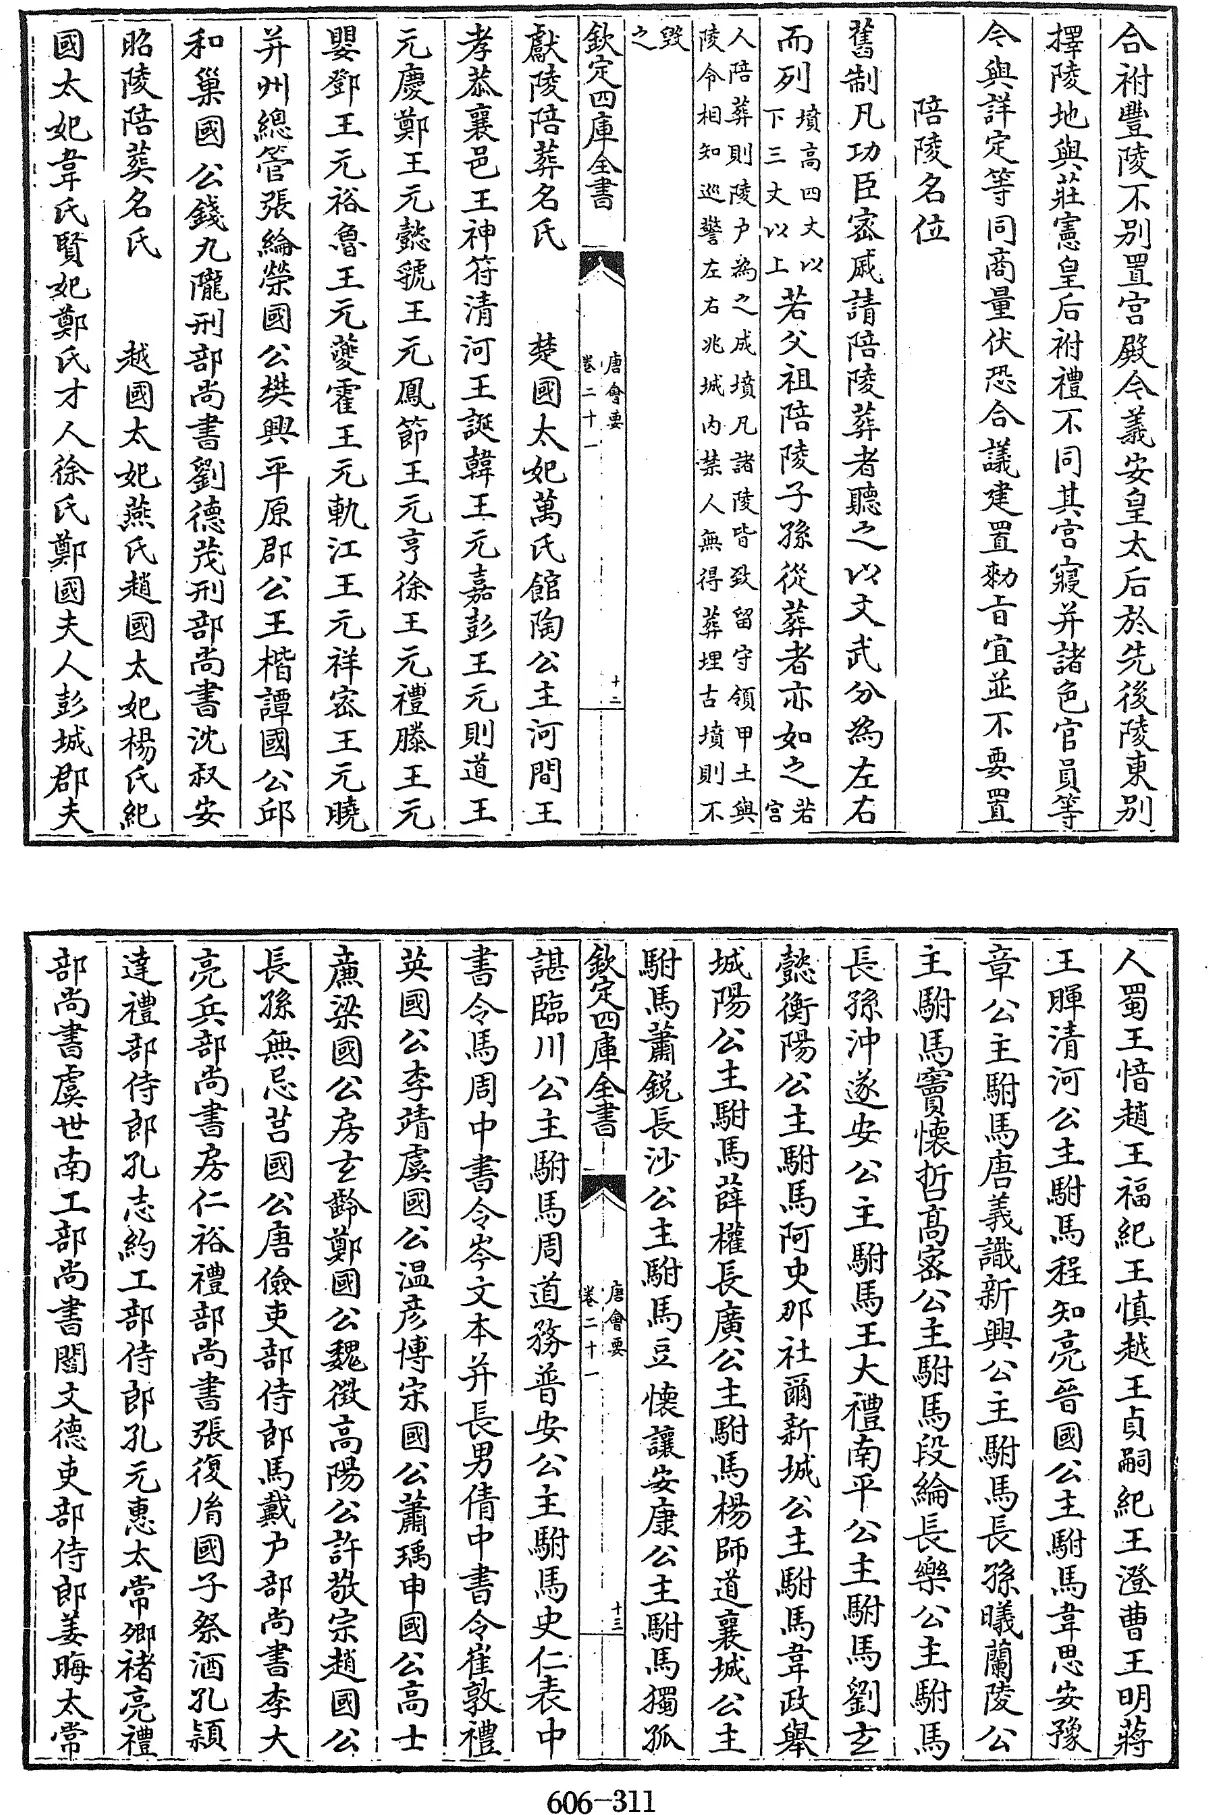 合祔豐陵不别置宫殿今義安皇太后於先後陵東别
擇陵地與莊憲皇后祔禮不同其宫寢并諸色官員等
令與詳定等同商量伏恐合議建置勅旨宜並不要置
陪陵名位
舊制凡功臣宻戚請陪陵葬者聽之以文武分為左右
而列墳高四丈以下三丈以上若父祖陪陵子孫從葬者亦如之若宫
人陪葬則陵户為之成墳凡諸陵皆致留守領甲士與
陵令相知巡警左右兆域内禁人無得葬埋古墳則不
毁之
欽定四庫全書
唐會要
卷二十一
十二
獻陵陪葬名氏 楚國太妃萬氏館陶公主河間王
孝恭襄邑王神符清河王誕韓王元嘉彭王元則道王
元慶鄭王元懿虢王元鳳節王元亨徐王元禮滕王元
嬰鄧王元裕魯王元夔霍王元軌江王元祥宻王元曉
并州總管張綸榮國公樊興平原郡公王楷譚國公邱
和巢國公錢九隴刑部尚書劉徳茂刑部尚書沈叔安
昭陵陪葬名氏 越國太妃燕氏趙國太妃楊氏紀
國太妃韋氏賢妃鄭氏才人徐氏鄭國夫人彭城郡夫
人蜀王愔趙王福紀王慎越王貞嗣紀王澄曹王明蔣
王暉清河公主駙馬程知亮晉國公主駙馬韋思安豫
章公主駙馬唐義識新興公主駙馬長孫曦蘭陵公
主駙馬竇懐哲髙宻公主駙馬段綸長樂公主駙馬
長孫沖遂安公主駙馬王大禮南平公主駙馬劉玄
懿衡陽公主駙馬阿史那社爾新城公主駙馬韋政舉
城陽公主駙馬薛權長廣公主駙馬楊師道襄城公主
駙馬蕭鋭長沙公主駙馬豆懐讓安康公主駙馬獨孤
欽定四庫全書
唐會要
卷二十一
十三
諶臨川公主駙馬周道務普安公主駙馬史仁表中
書令馬周中書令岑文本并長男倩中書令崔敦禮
英國公李靖虞國公温彦博宋國公蕭瑀申國公高士
廉梁國公房玄齡鄭國公魏徴高陽公許敬宗趙國公
長孫無忌莒國公唐儉吏部侍郎馬戴户部尚書李大
亮兵部尚書房仁裕禮部尚書張復胤國子祭酒孔穎
達禮部侍郎孔志約工部侍郎孔元惠太常卿禇亮禮
部尚書虞世南工部尚書閻文徳吏部侍郎姜晦太常
606-311